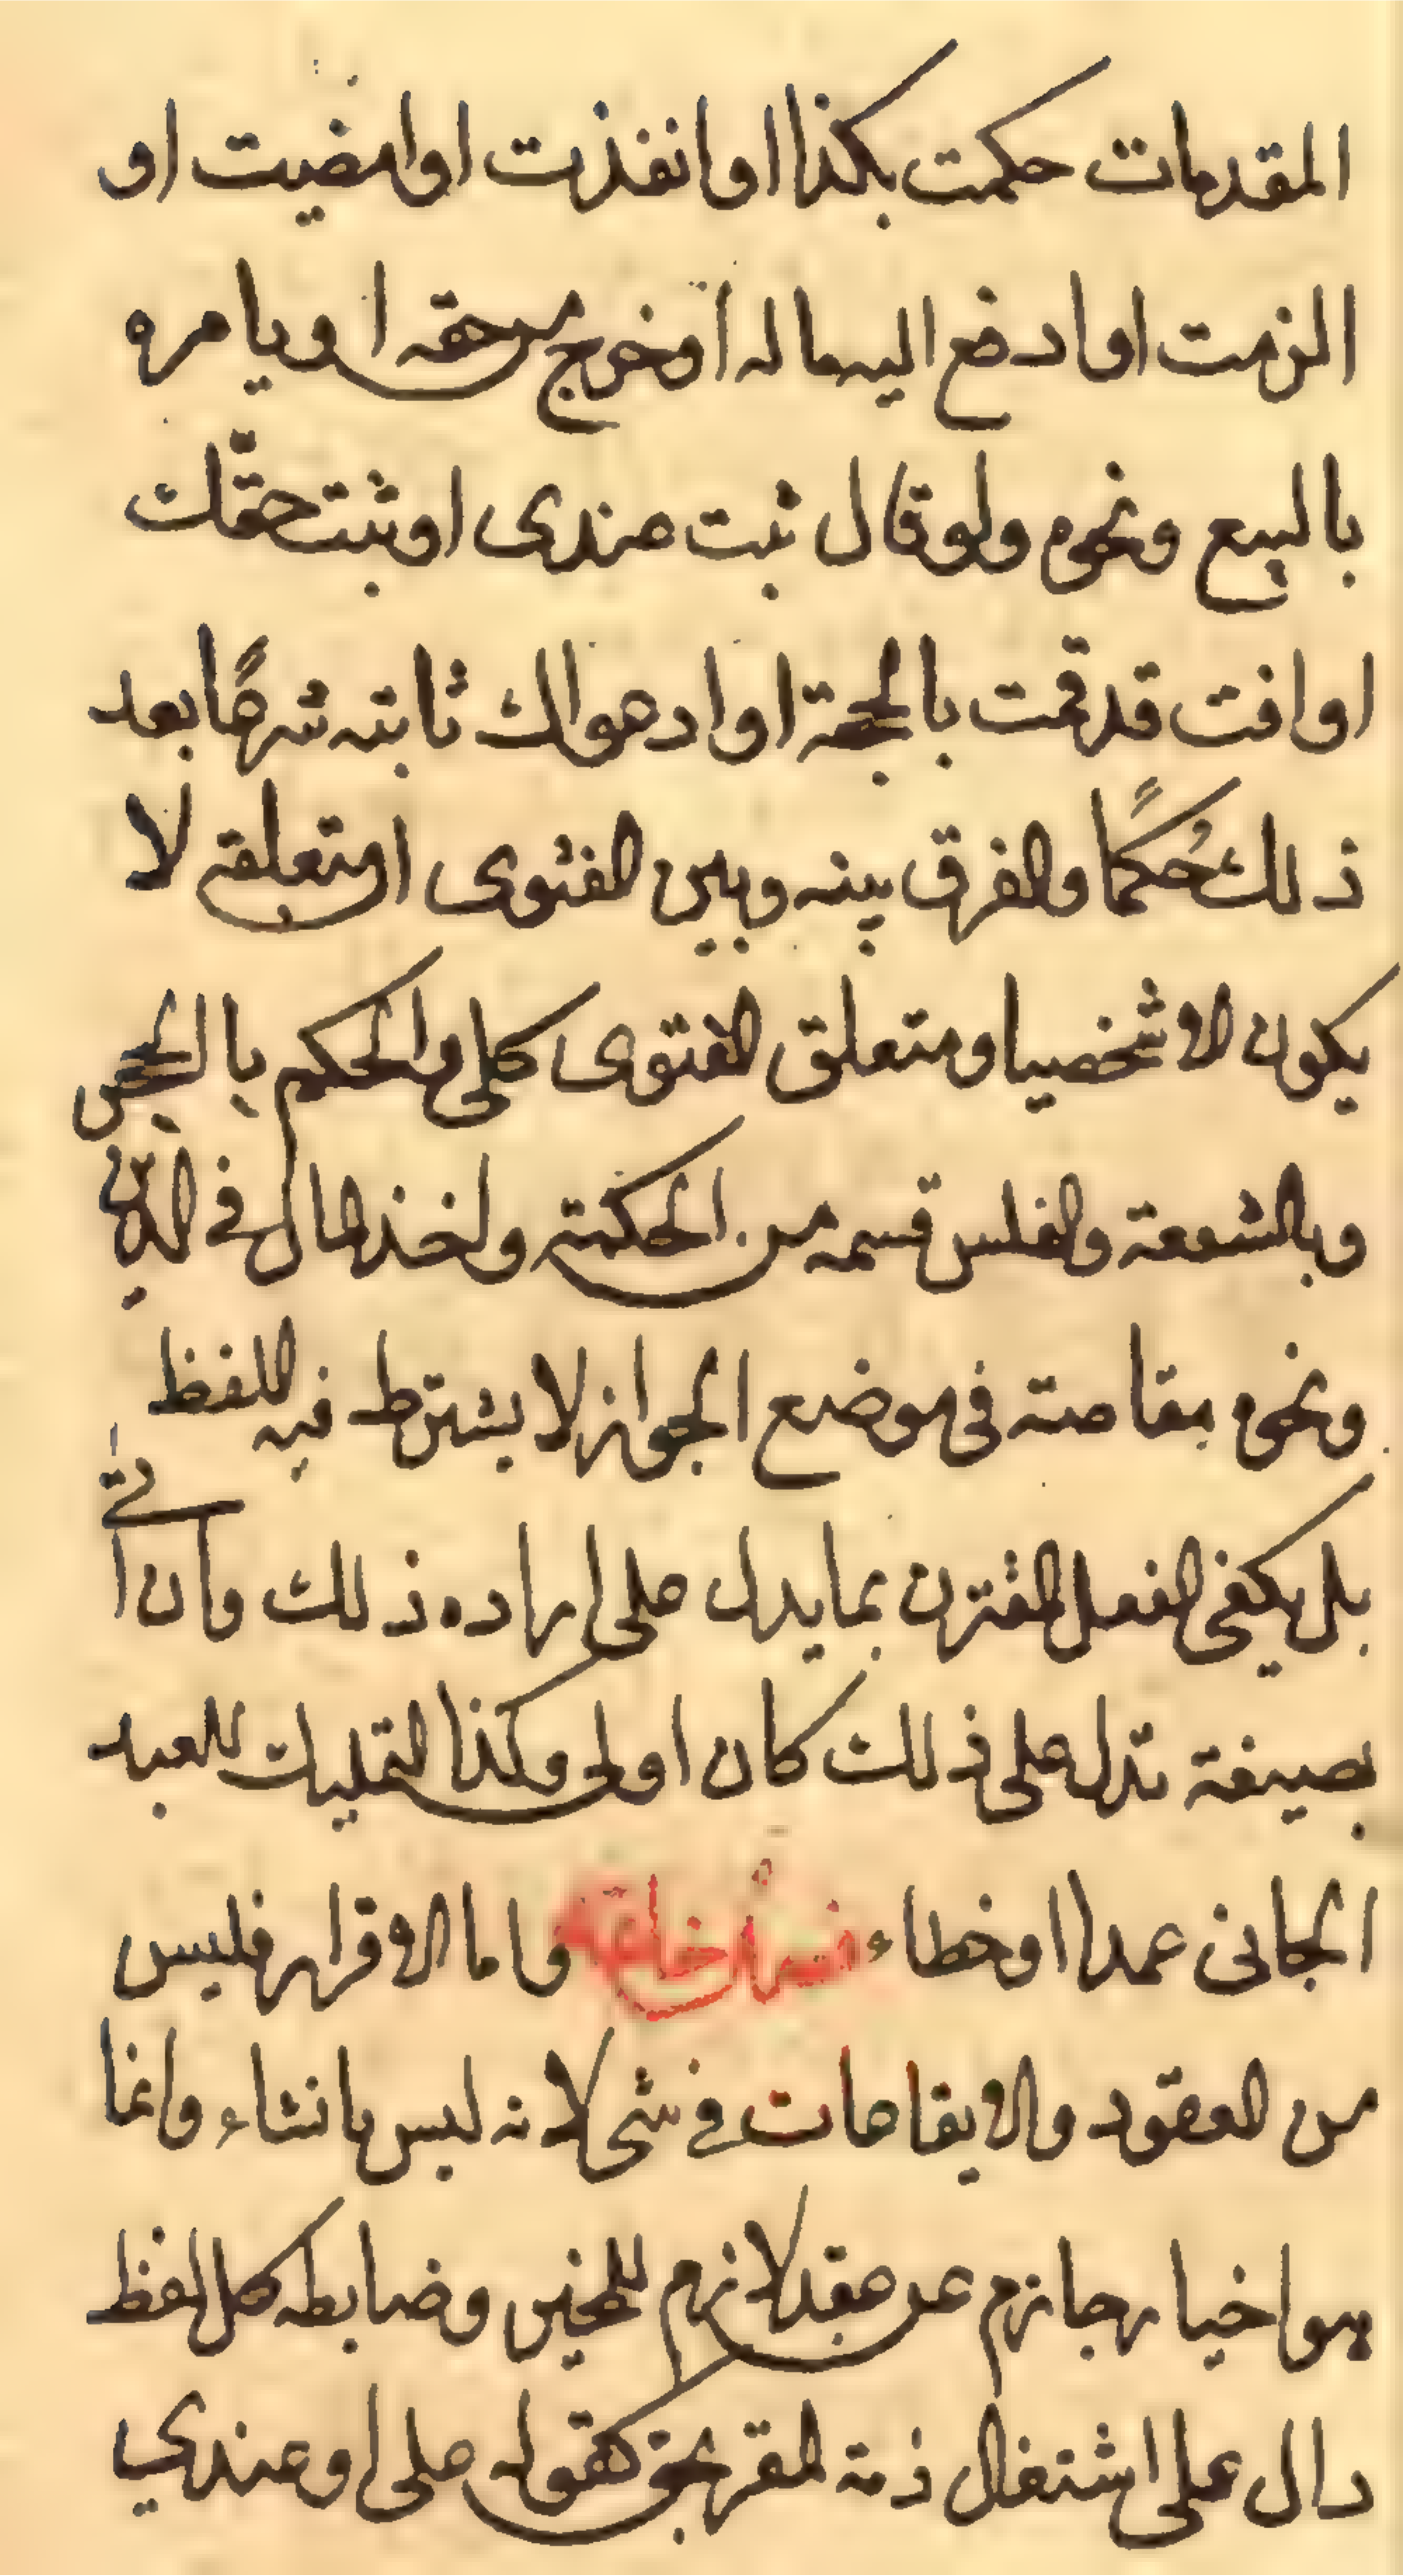 المقدمات حكمت بكذا او انفذت او امضيت او
الزمت او ادفع اليه ماله او خرج من حقه او يامره
بالبيع ونحوه ولو قال ثبت عندى او ثبت حقك
او انت قد قمت بالحجة او ادعواك ثابته شرعًا بعد
ذلك حُكمًا والفرق بينه وبين الفتوى ان متعلقه لا
يكون الا شخصيا ومتعلق الفتوى كلى والحكم بالحجر
وبالشفعة والفلس قسمه من الحكمة واخذ المال فى الدين
ونحوه مقاصة فى موضع الجواز لا يشترط فيه اللفظ
بل يكفى الفعل المقترن بما يدل على اراده ذلك وان اتى
بصيغة تدل على ذلك كان اولى وكذا التمليك للعبد
الجانى عمدا او خطاء واما الاقرار فليس
من العقود والايقاعات فى شى لانه ليس بانشاء وانما
هو اخبار جازم عن عقد لازم للمخبر وضابطه كل لفظ
دال على اشتغال ذمة المقر بحق كقوله على او عندي